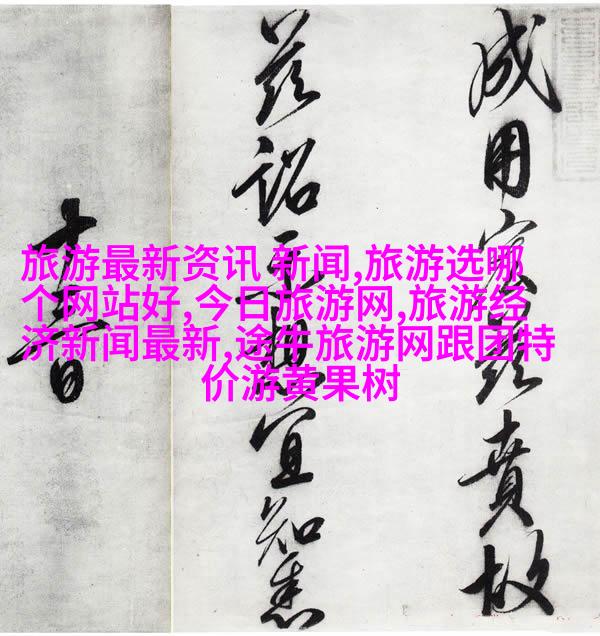 旅游最新资讯 新闻,旅游选哪
个网站好,今日旅游网,旅游经
济新闻最新,途牛旅游网跟团特
价游黄果树
成用宏赉賁故
兹诏示想宜知悉
十二日